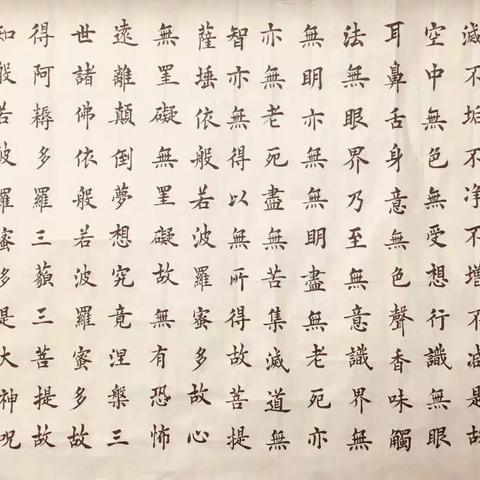 滅不垢不净不增不减是故
空中無色無受想行識無眼
耳鼻舌身意無色聲香味觸
法無眼界乃至無意識界無
無明亦無無明盡無老死亦
亦無老死盡無苦集滅道無
智亦無得以無所得故菩提
薩埵依般若波羅蜜多故心
無罣礙無罣礙故無有恐怖
遠離顛倒夢想究竟涅槃三
世諸佛依般若波羅蜜多故
得阿耨多羅三藐三菩提故
知般若波羅蜜多是大神呪